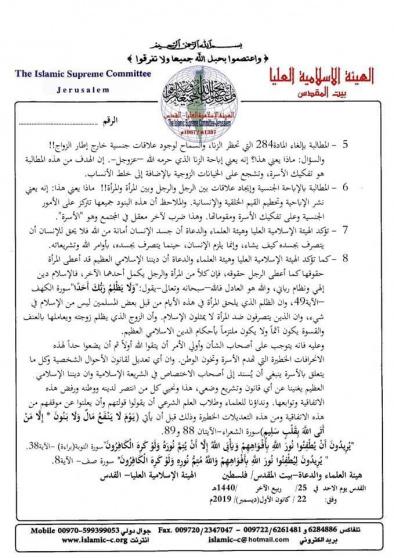 بسم الله الرحمن الرحيم
﴿ واعتصموا بحبل الله جميعا ولا تفرقوا ﴾
The Islamic Supreme Committee
Jerusalem
الهيئة الاسلامية العليا
بيت المقدس
الهيئة الاسلامية العليا - القدس
The Islamic Supreme Committee-Jerusalem
الرقم
5 - المطالبة بإلغاء المادة284 التي تحظر الزنا، والسماح لوجود علاقات جنسية خارج إطار الزواج!!
والسؤال: ماذا يعني هذا؟ إنه يعني إباحة الزنا الذي حرمه الله –عزوجل-. إن الهدف من هذه المطالبة
هو تفكيك الأسرة، وتشجع على الخيانات الزوجية بالإضافة إلى خلط الأنساب.
6 - المطالبة بالإباحة الجنسية وإيجاد علاقات بين الرجل والرجل وبين المرأة والمرأة!! ماذا يعني هذا: إنه يعني
نشر الإباحية وتحطيم القيم الخلقية والإنسانية. والملاحظ أن هذه البنود جميعها تتركز على الأمور
الجنسية وعلى تفكيك الأسرة ومقوماتها. وهذا ضرب لآخر معقل في المجتمع وهو "الأسرة".
7 - كما تؤكد الهيئة الإسلامية العليا وهيئة العلماء والدعاة أن جسد الإنسان أمانة من الله فلا يحق للإنسان أن
يتصرف بجسده كيف يشاء، وإنما يلزم الإنسان، حينما يتصرف بجسده، بأوامر الله وتشريعاته.
8 - كما تؤكد الهيئة الإسلامية العليا وهيئة العلماء والدعاة أن ديننا الإسلامي العظيم قد أعطى المرأة
حقوقها كما أعطى الرجل حقوقه، فإن كلاً من المرأة والرجل يكمل أحدهما الآخر، فالإسلام دين
إلهي ونظام رباني، والله هو العادل فالله–سبحانه وتعالى-يقول:"وَلَا يَظْلِمُ رَبُّكَ أَحَدًا"سورة الكهف
-الآية49، وإن الظلم الذي يلحق المرأة في هذه الأيام من قبل بعض المسلمين ليس من الإسلام في
شيء، وإن الذين يتصرفون ضد المرأة لا يمثلون الإسلام. وأن الزوج الذي يظلم زوجته ويعاملها بالعنف
والقسوة يكون آثماً ولا يكون ملتزماً بأحكام الدين الاسلامي العظيم.
وعليه فانه يتوجب على أصحاب الشأن وأولي الأمر أن يتقوا الله أولاً ثم أن يضعوا حداً لهذه
الانحرافات الخطيرة التي تهدم الأسرة وتخون الوطن. وإن أي تعديل لقانون الأحوال الشخصية وكل ما
يتعلق بالأسرة ينبغي أن يسند إلى أصحاب الاختصاص في الشريعة الإسلامية وان ديننا الإسلامي
العظيم يغنينا عن أي قانون وتشريع وضعي، هذا ونحيي كل من انتصر لدينه ووطنه ورفض هذه
الاتفاقية وتوابعها. ونداؤنا للعلماء وطلاب العلم الشرعي أن يقولوا قولتهم وأن يعلنوا عن موقفهم من
هذه الاتفاقية ومن هذه التعديلات الخطيرة وذلك قبل أن يأتي (يَوْمَ لَا يَنفَعُ مَالٌ وَلَا بَنُونَ * إِلَّا مَنْ
أَتَى اللهَ بِقَلْبٍ سَلِيمٍ)سورة الشعراء-الآيتان 88 و89.
"يُرِيدُونَ أَنْ يُطْفِئُوا نُورَ اللهِ بِأَفْوَاهِهِمْ وَيَأْبَى اللهُ إِلَّا أَنْ يُتِمَّ نُورَهُ وَلَوْ كَرِهَ الْكَافِرُونَ" سورة التوبة(براءة) -الآية38.
"يُرِيدُونَ لِيُطْفِئُوا نُورَ اللهِ بِأَفْوَاهِهِمْ وَاللهُ مُتِمُّ نُورِهِ وَلَوْ كَرِهَ الْكَافِرُونَ" سورة صف- الآية8.
هيئة العلماء والدعاة–بيت المقدس/ فلسطين الهيئة الإسلامية العليا- القدس
القدس يوم الاحد في 25/ ربيع الآخر /1440هـ
وفق: 22/ كانون الأول(ديسمبر) /2019م
تلفاكس 6284886 و 6261481/ 009722 - 2347047/ 009720 Fax جوال دولي 00970-599399053 Mobile
بريد الكتروني islamic-c@hotmail.com انترنت www.islamic-c.org